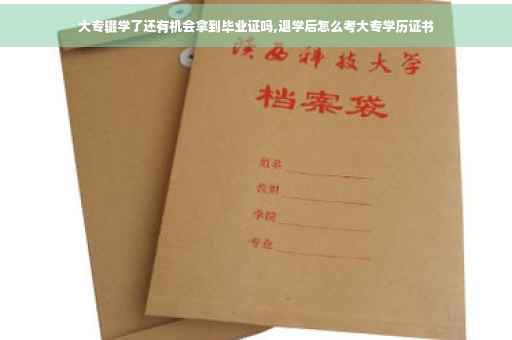 大专辍学了还有机会拿到毕业证吗,退学后怎么考大专学历证书
陕西科技大学
档案袋
姓名
学院
专业